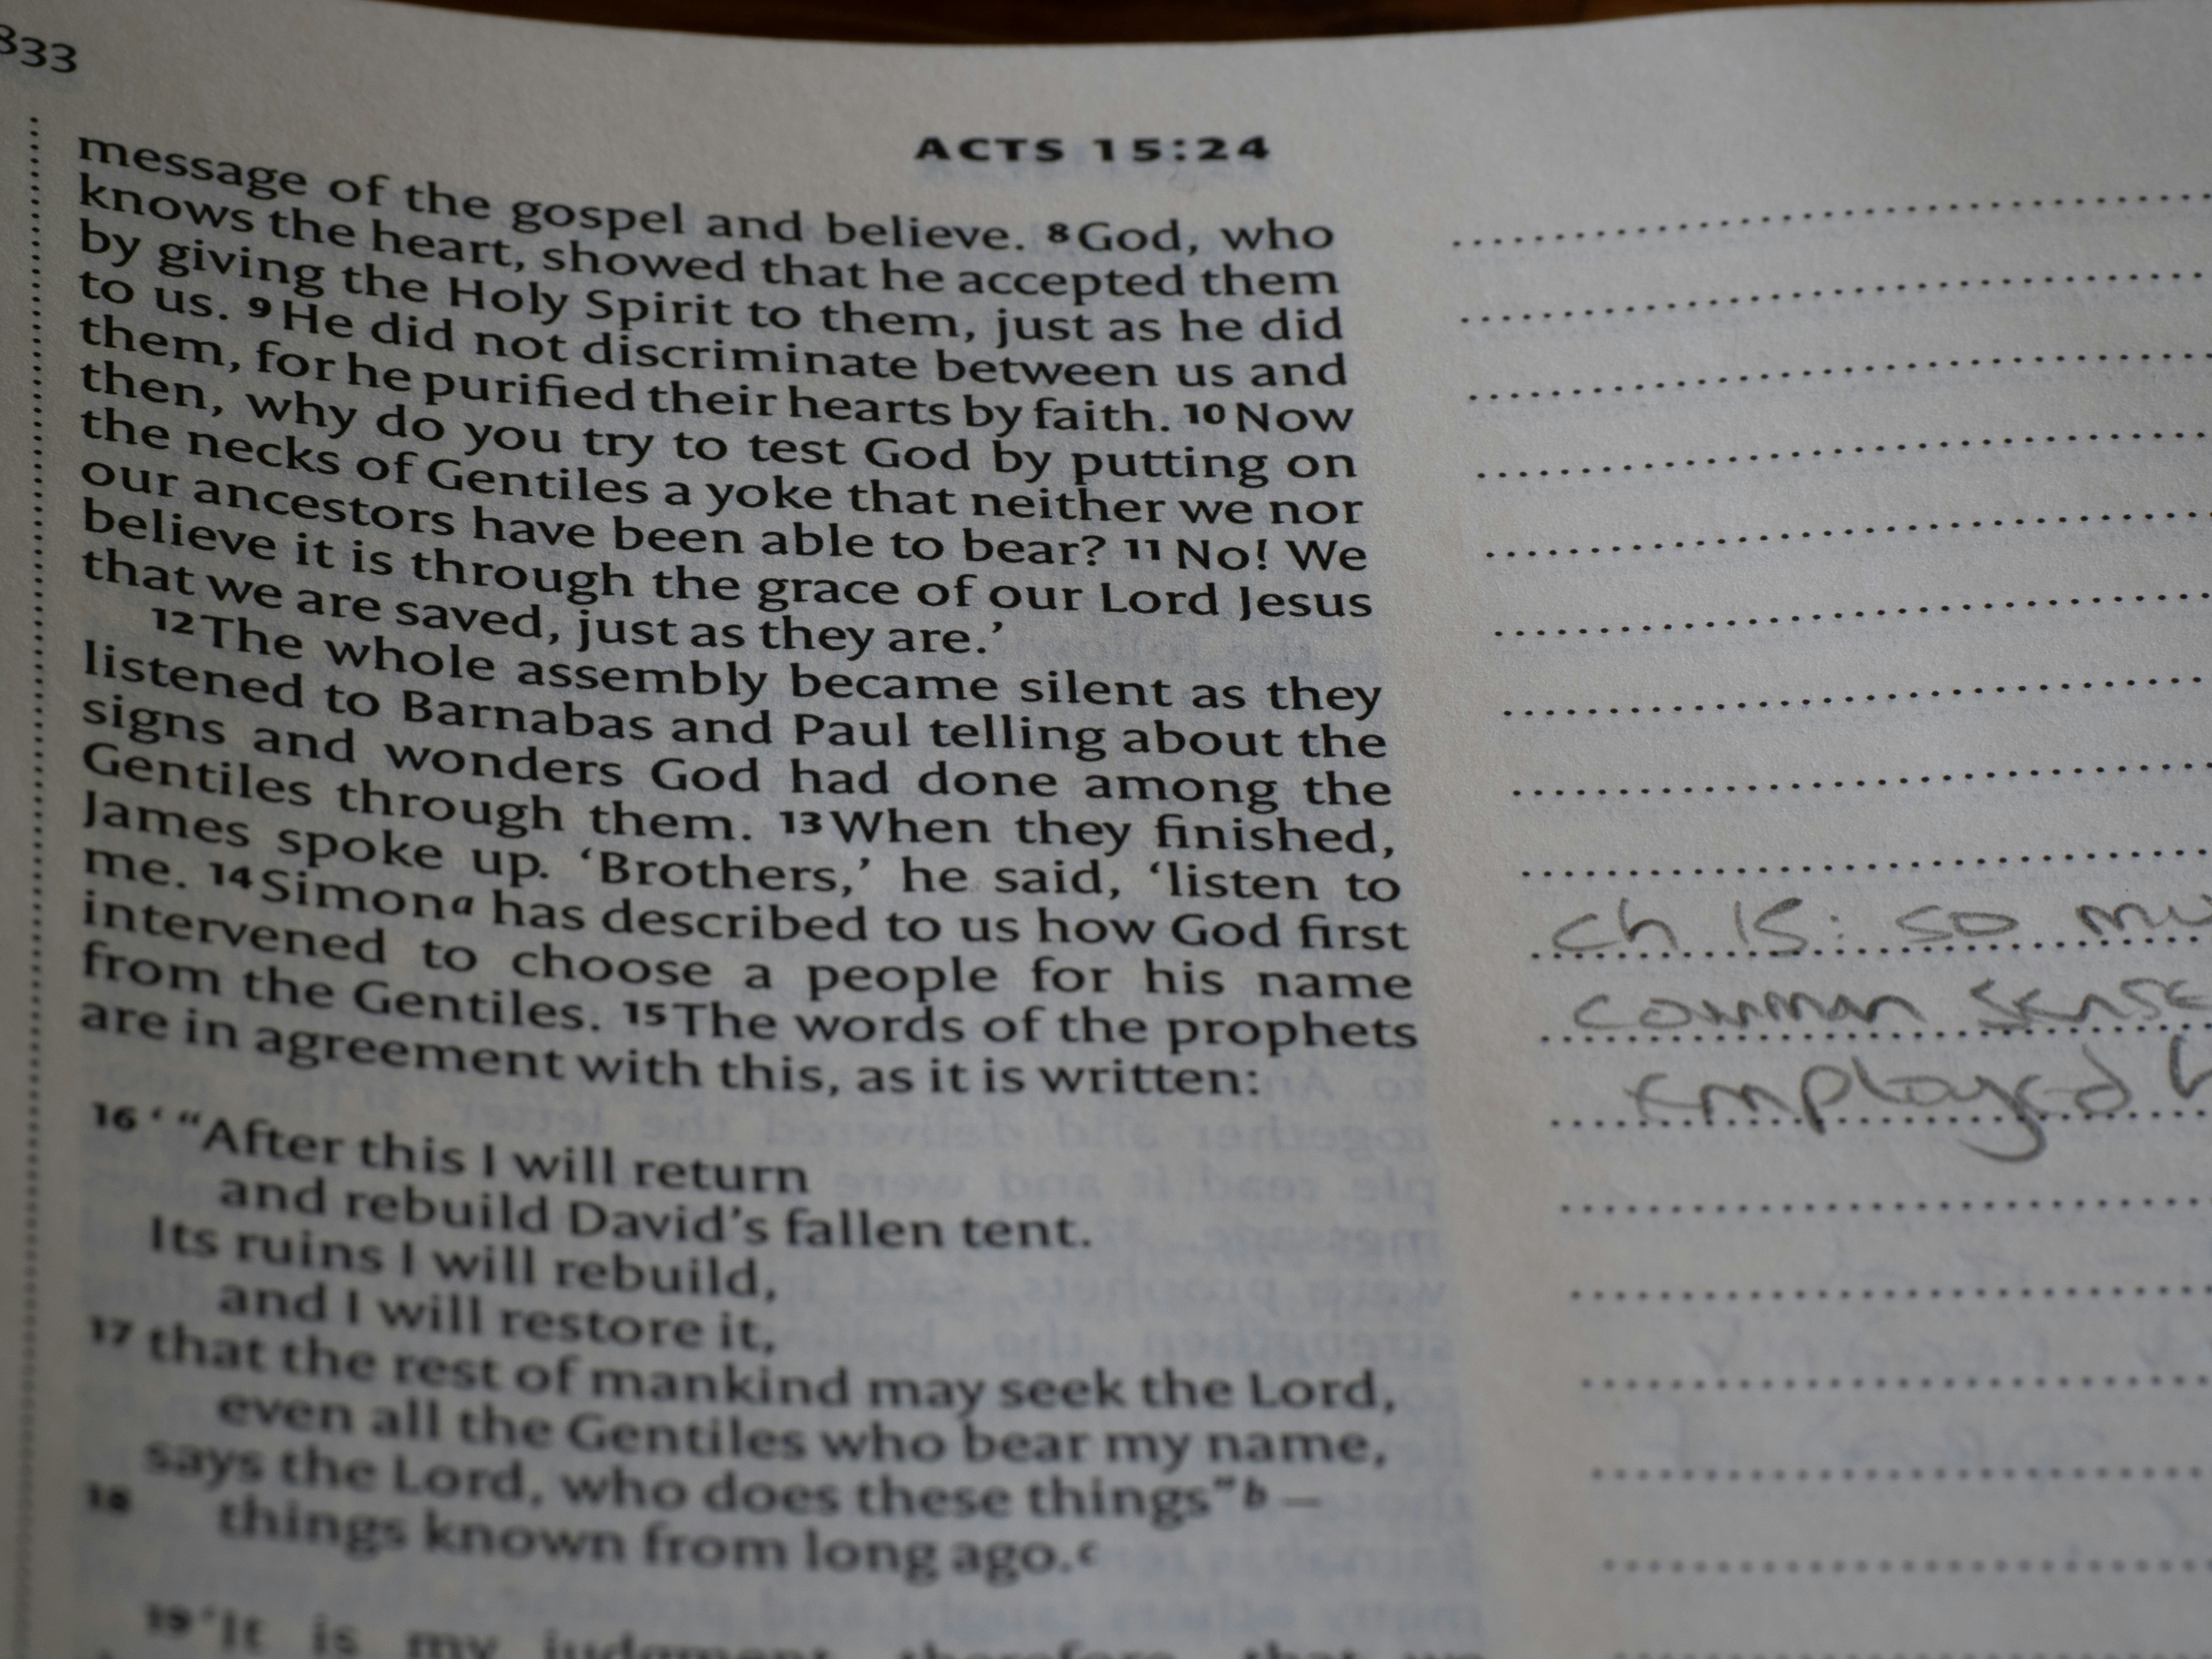 833
ACTS 15:24
message of the gospel and believe. 8 God, who
knows the heart, showed that he accepted them
by giving the Holy Spirit to them, just as he did
to us. 9 He did not discriminate between us and
them, for he purified their hearts by faith. 10 Now
then, why do you try to test God by putting on
the necks of Gentiles a yoke that neither we nor
our ancestors have been able to bear? 11 No! We
believe it is through the grace of our Lord Jesus
that we are saved, just as they are.’
12 The whole assembly became silent as they
listened to Barnabas and Paul telling about the
signs and wonders God had done among the
Gentiles through them. 13 When they finished,
James spoke up. ‘Brothers,’ he said, ‘listen to
me. 14 Simon a has described to us how God first
intervened to choose a people for his name
from the Gentiles. 15 The words of the prophets
are in agreement with this, as it is written:
16 ‘ “After this I will return
and rebuild David’s fallen tent.
Its ruins I will rebuild,
and I will restore it,
17 that the rest of mankind may seek the Lord,
even all the Gentiles who bear my name,
says the Lord, who does these things” b —
18 things known from long ago. c
19 ‘It is my judgment, therefore, that we
ch 15: so
common sense
employed